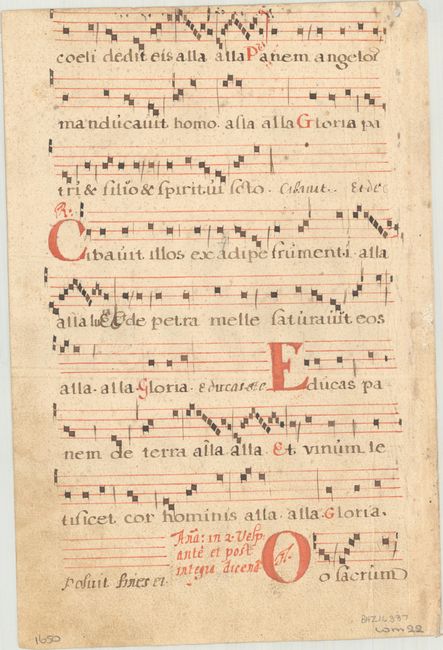 coeli dedit eis alla alla Panem angelor
manducavit homo. alla alla Gloria pa
tri & filio & spiritui scto. Cibavit. Et de
R.
Cibavit illos ex adipe frumenti. alla
alla Et de petra melle saturavit eos
alla. alla Gloria. Educas Educas pa
nem de terra alla. alla. Et vinum le
tificet. cor hominis alla. alla. Gloria.
Aña: in 2. Vesp.
ante et post
integra dicend
Posuit fines et O O sacrum
1650